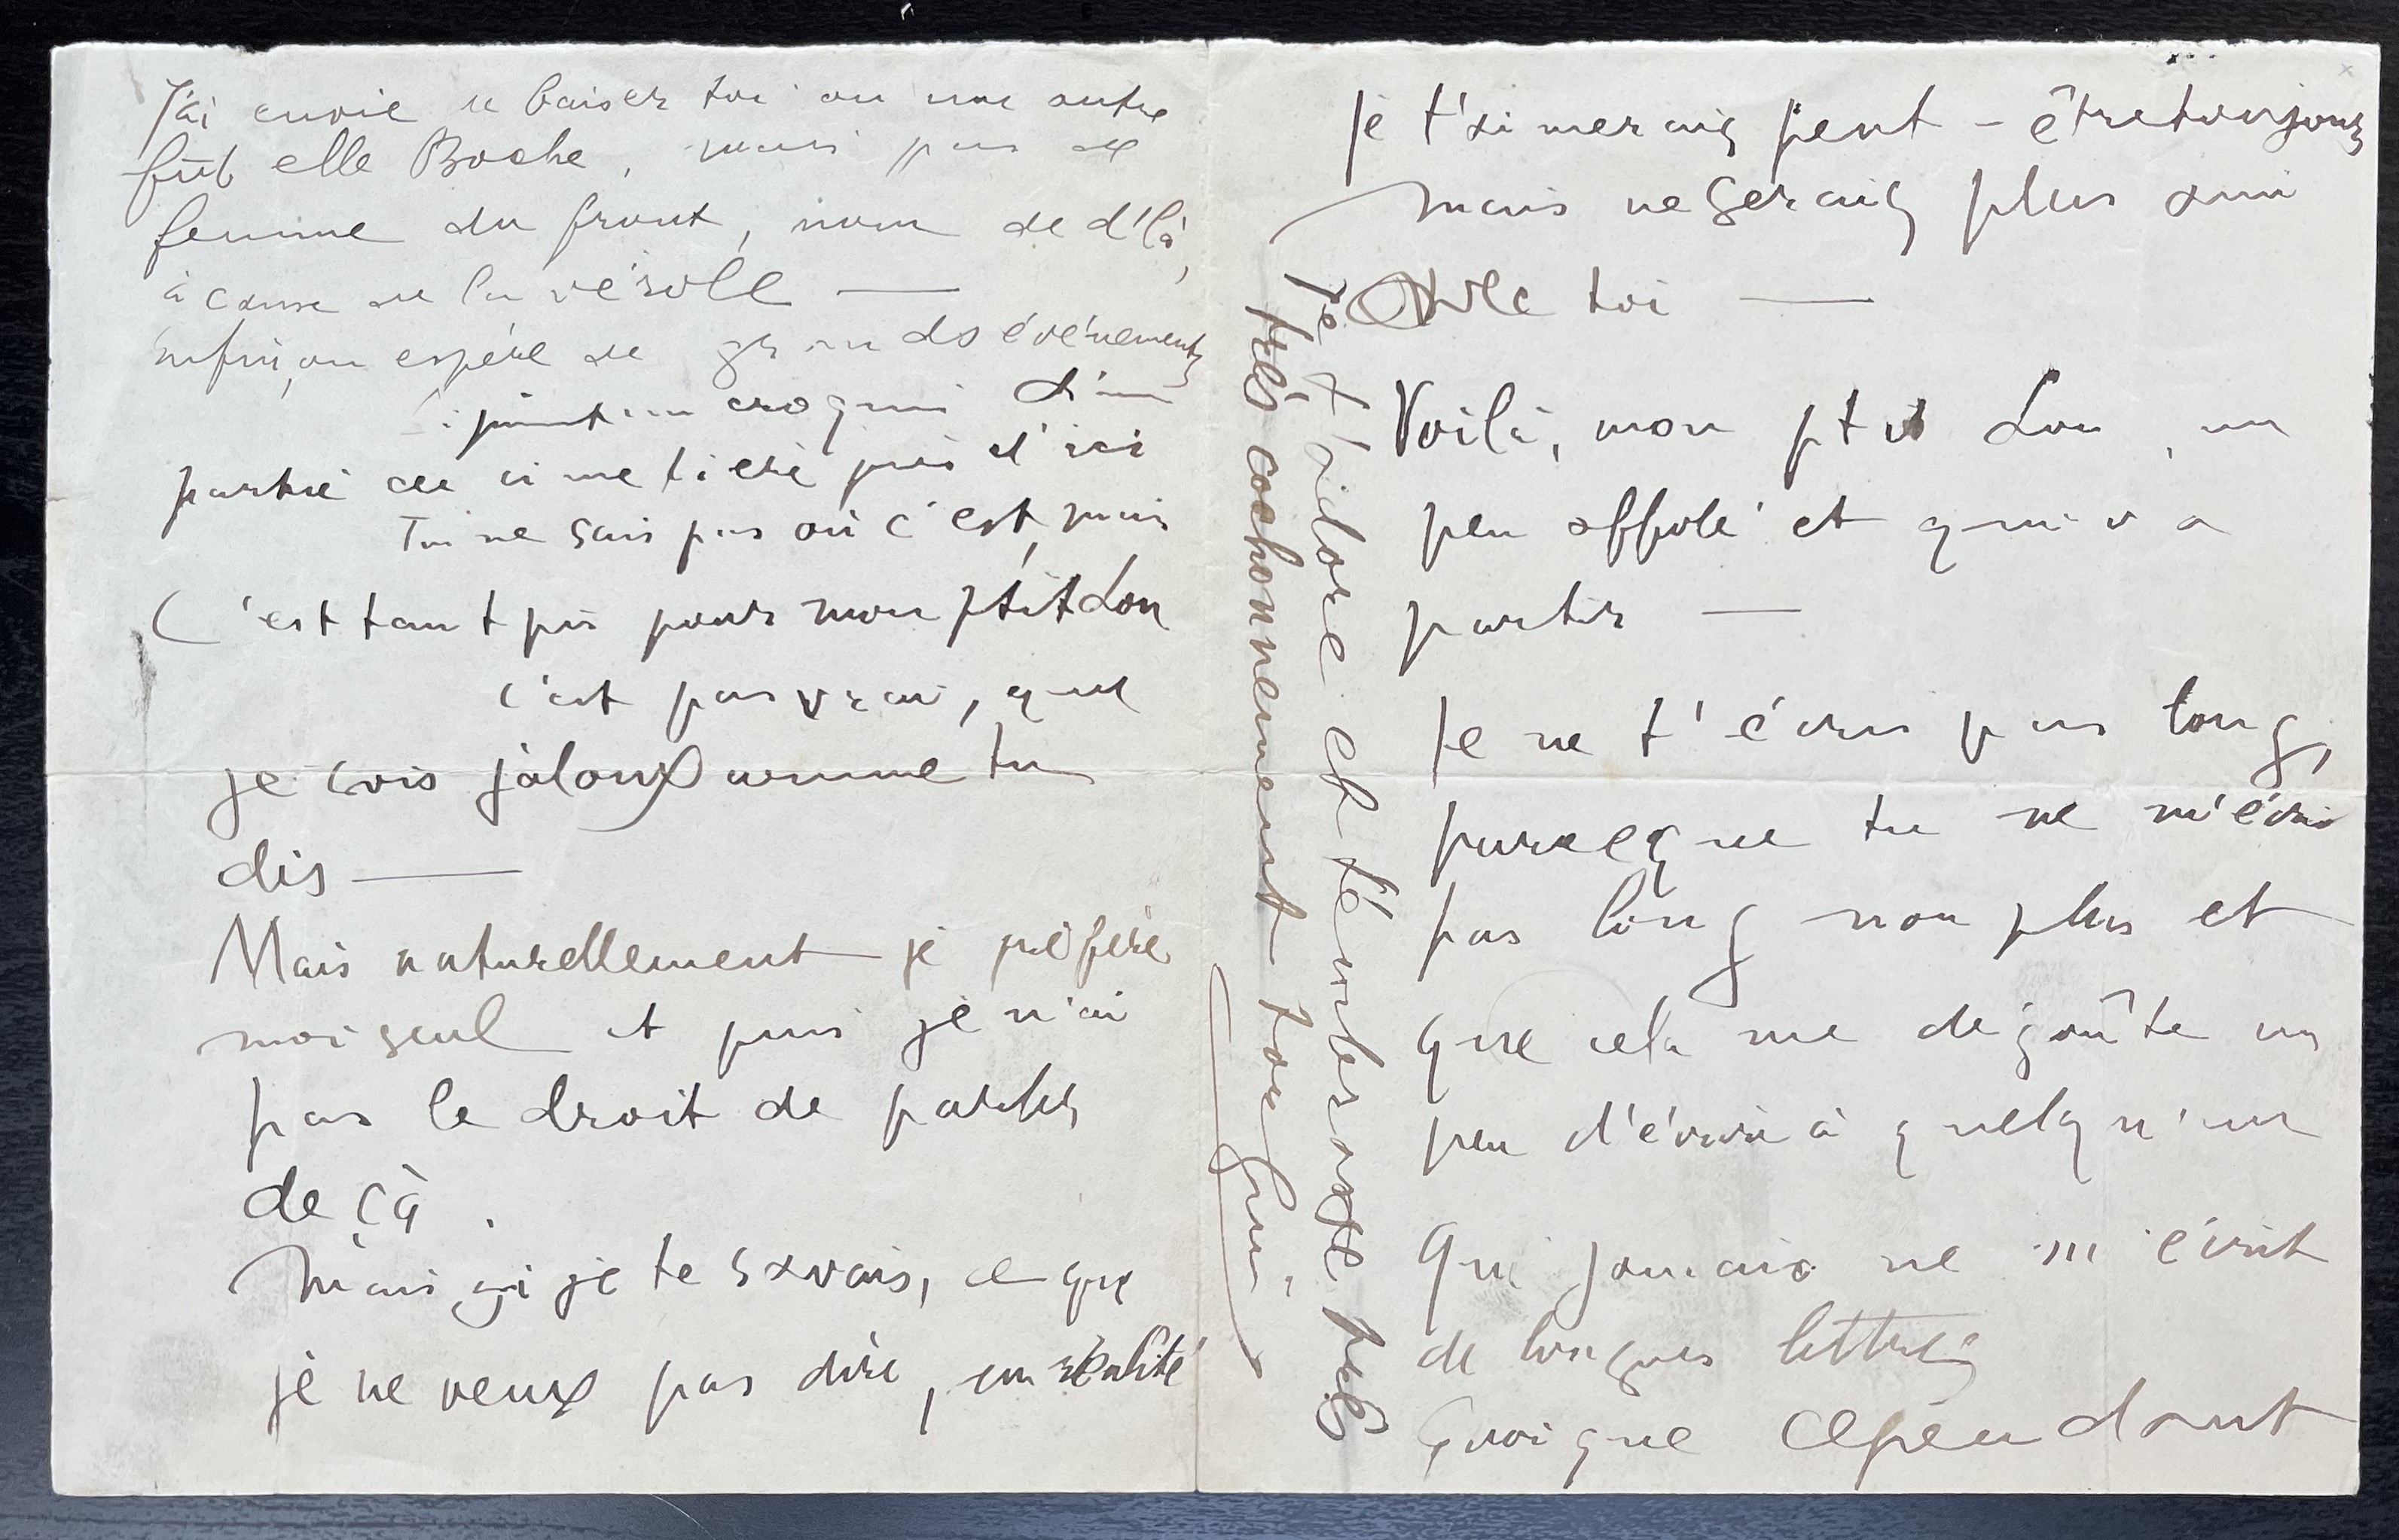 J'ai envie de baiser toi ou une autre
fût elle Boche, mais pas de
femme du front, nom de d'là,
à cause de la vérole —
enfin, on espère de grands événements
joint un croquis d'un
partie du cimetière près d'ici
Tu ne sais pas où c'est, mais
C'est tant pis pour mon ptit Lou
C'est pas vrai, que
je sois jaloux comme tu
dis —
Mais naturellement je préfère
moi seul et puis je n'ai
pas le droit de parler
de çà.
Mais si je te savais, ce que
je ne veux pas dire, en réalité
je t'aimerais peut-être toujours
mais ne serais plus ami
avec toi —
Voilà, mon ptit Lou, un
peu affolé et qui va
partir —
Je ne t'écris pas long,
parceque tu ne m'écris
pas long non plus et
que cela me dégoûte un
peu d'écrire à quelqu'un
qui jamais ne m'écrit
de longues lettres
Quoique cependant
Je t'adore et t'embrasse très
très cochonnement ton Gui